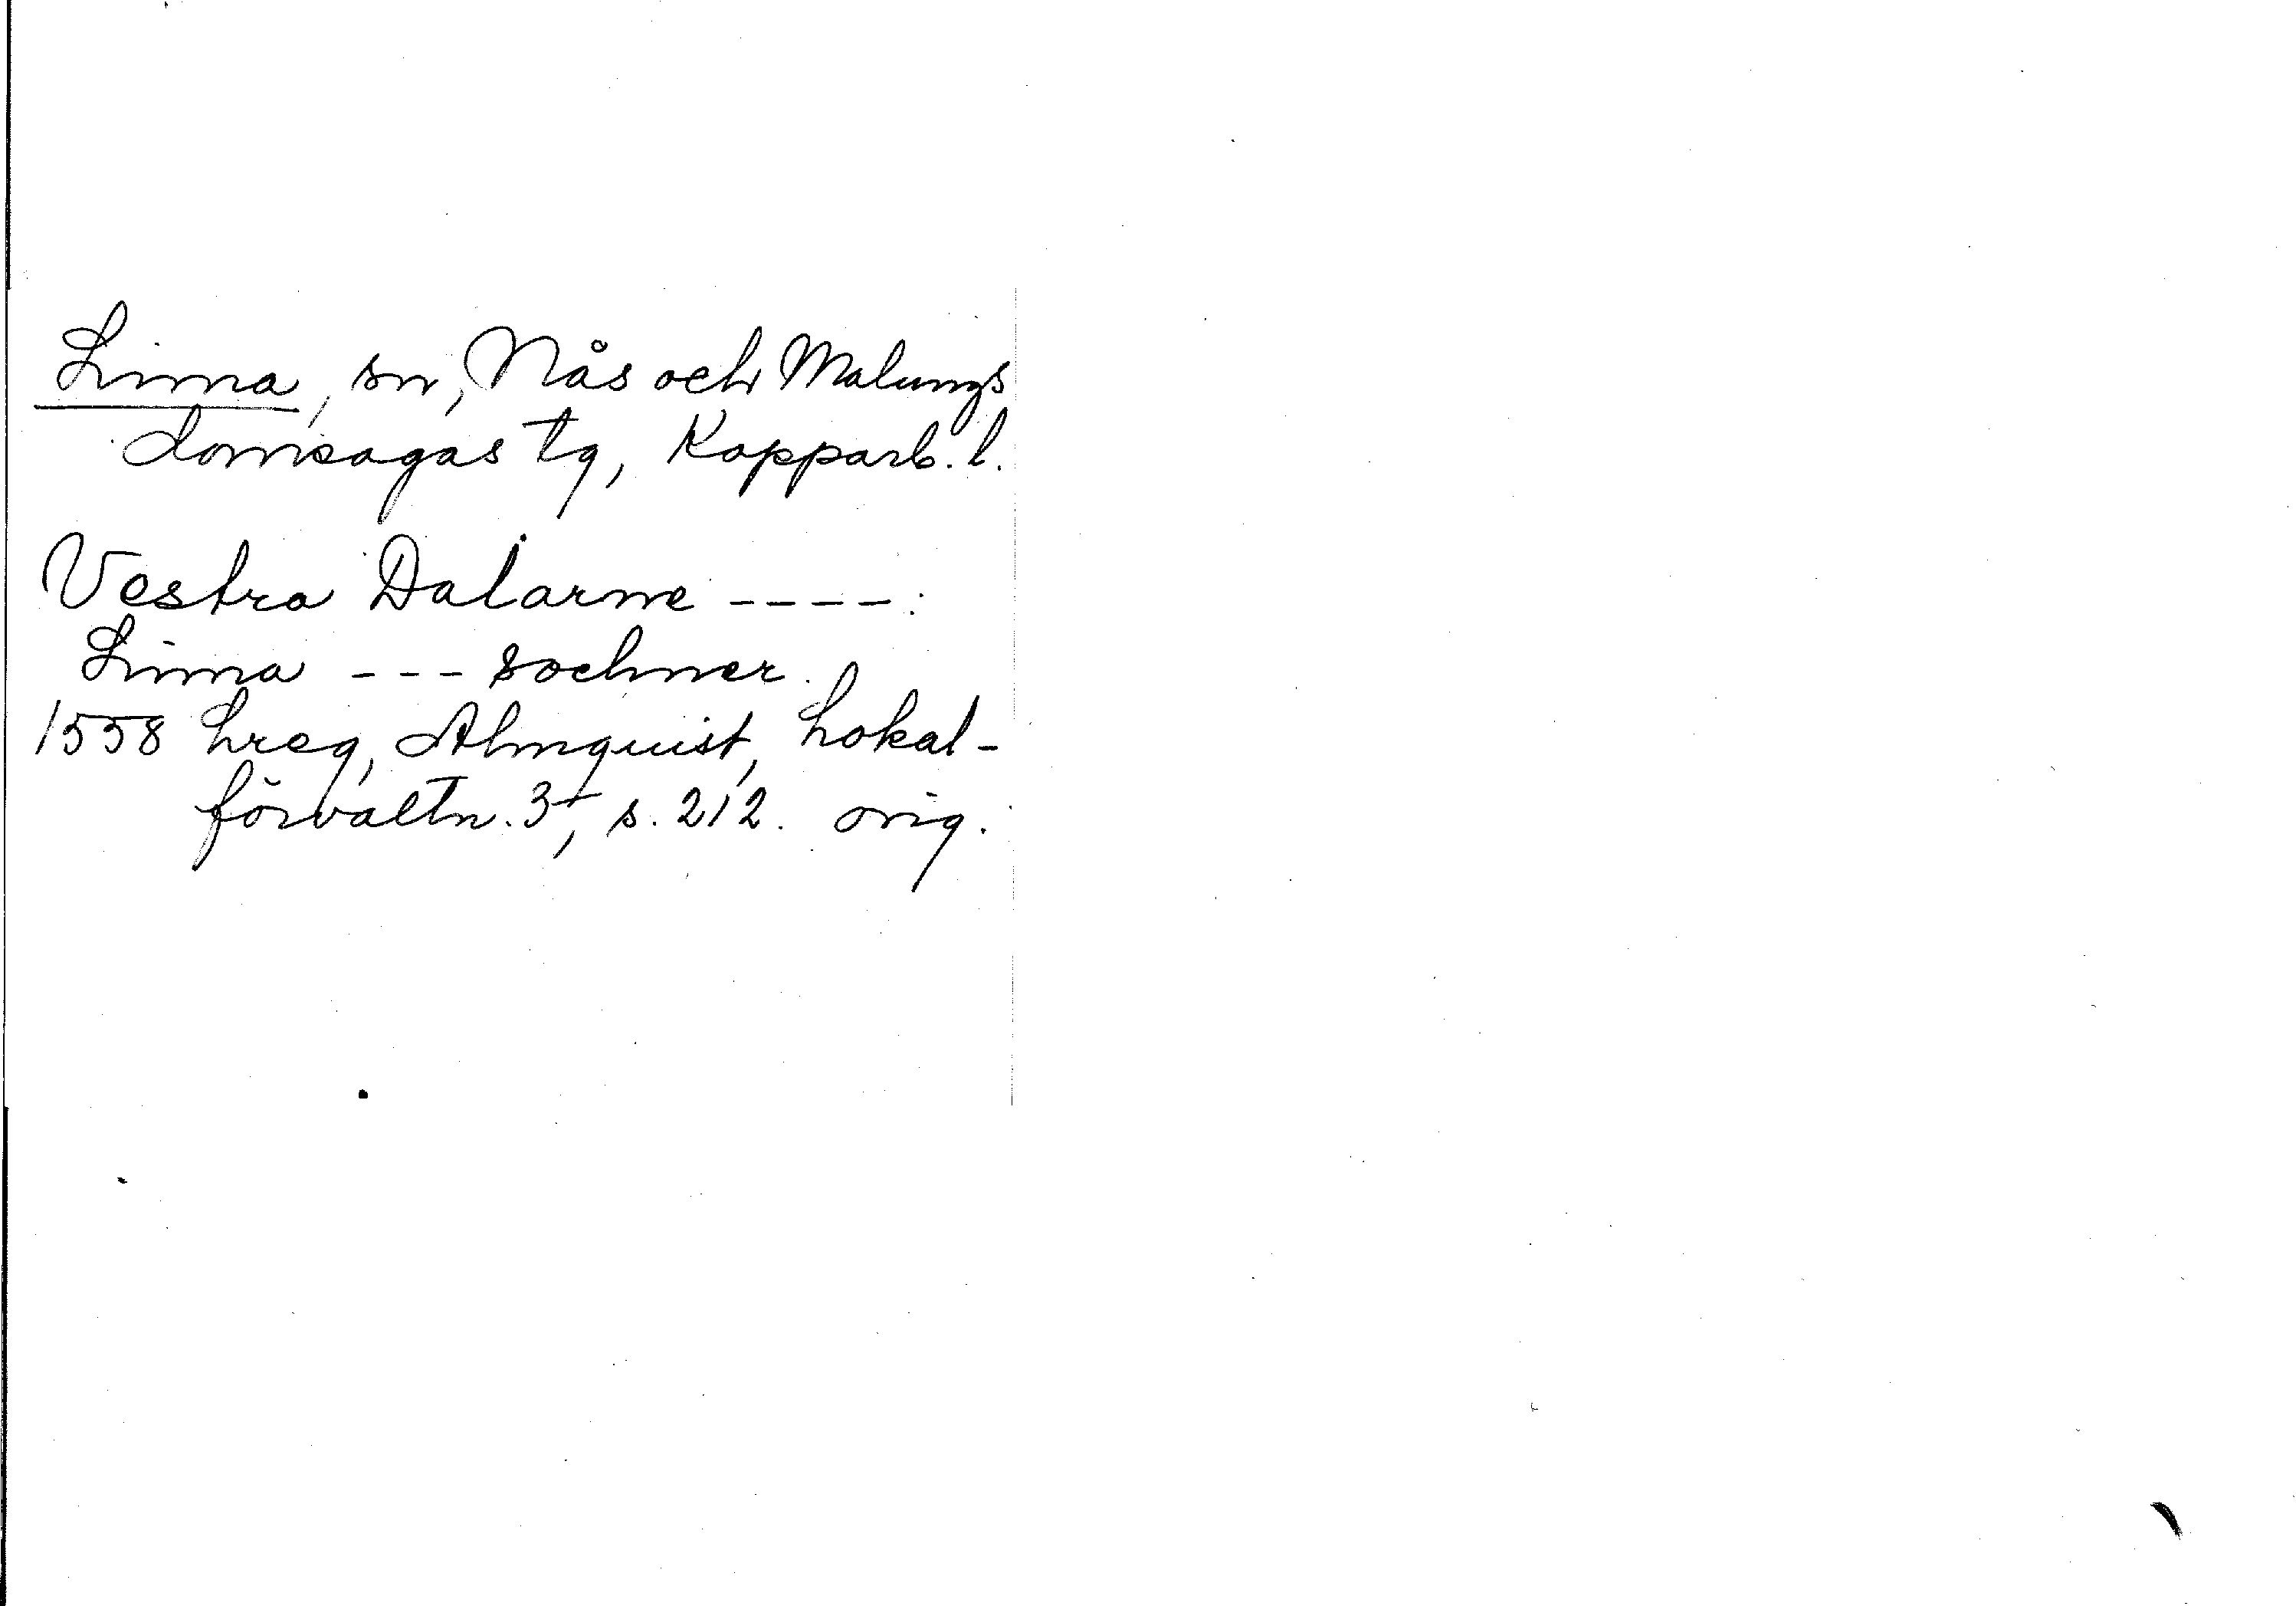 Lima, sn, Nås och Malungs
domsagas tg, Kopparb. l.
Vestra Dalarne ----:
Lima --- sochner.
1558 Lreg, Almquist, Lokal-
förvaltn. 3, s. 212. orig.